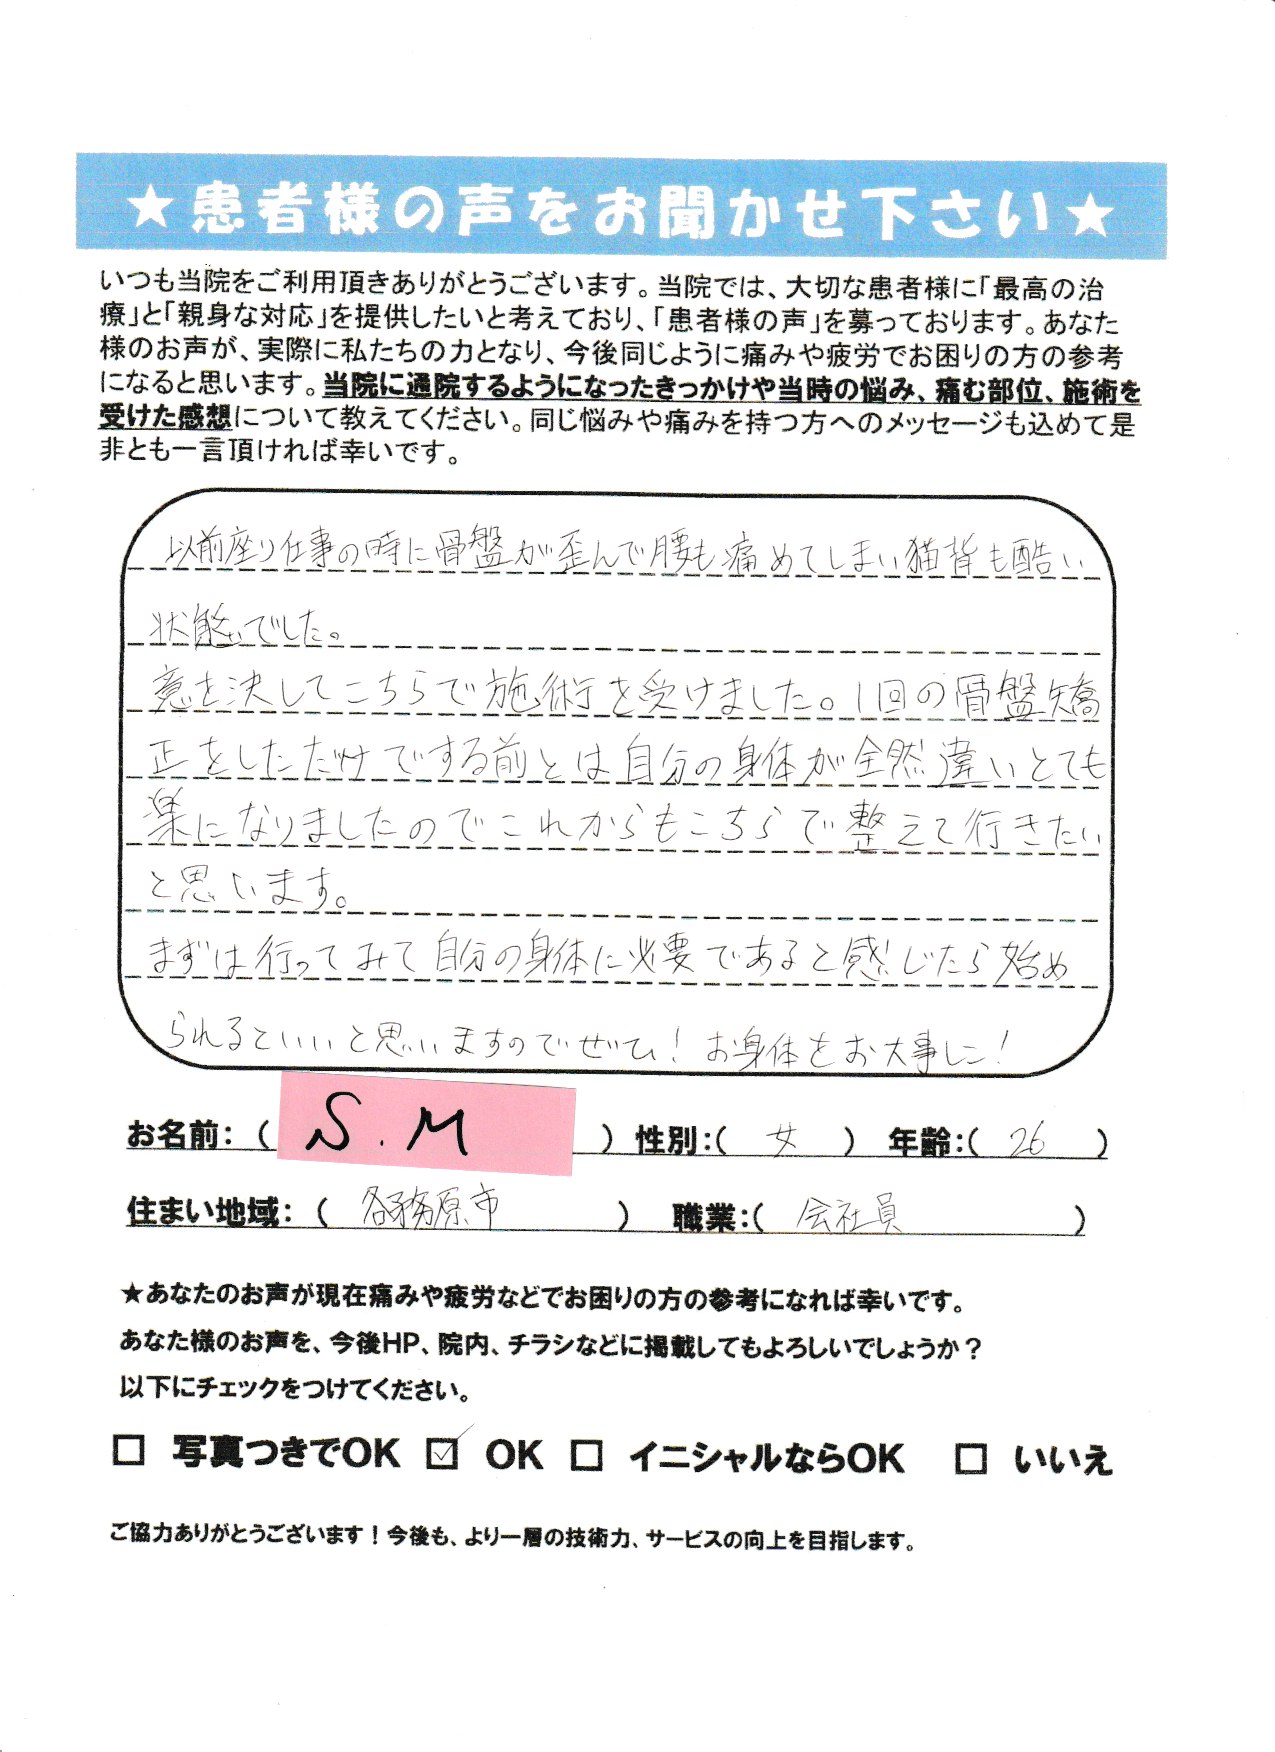 ★患者様の声をお聞かせ下さい★
いつも当院をご利用頂きありがとうございます。当院では、大切な患者様に「最高の治
療」と「親身な対応」を提供したいと考えており、「患者様の声」を募っております。あなた
様のお声が、実際に私たちの力となり、今後同じように痛みや疲労でお困りの方の参考
になると思います。当院に通院するようになったきっかけや当時の悩み、痛む部位、施術を
受けた感想について教えてください。同じ悩みや痛みを持つ方へのメッセージも込めて是
非とも一言頂ければ幸いです。
以前座り仕事の時に骨盤が歪んで腰も痛めてしまい猫背も酷い
状態でした。
意を決してこちらで施術を受けました。1回の骨盤矯
正をしただけでする前とは自分の身体が全然違いとても
楽になりましたのでこれからもこちらで整えて行きたい
と思います。
まずは行ってみて自分の身体に必要であると感じたら始め
られるといいと思いますのでぜひ!お身体をお大事に!
お名前:( S.M ) 性別:( 女 ) 年齢:( 26 )
住まい地域:( 各務原市 ) 職業:( 会社員 )
★あなたのお声が現在痛みや疲労などでお困りの方の参考になれば幸いです。
あなた様のお声を、今後HP、院内、チラシなどに掲載してもよろしいでしょうか?
以下にチェックをつけてください。
□ 写真つきでOK ☑ OK □ イニシャルならOK □ いいえ
ご協力ありがとうございます!今後も、より一層の技術力、サービスの向上を目指します。